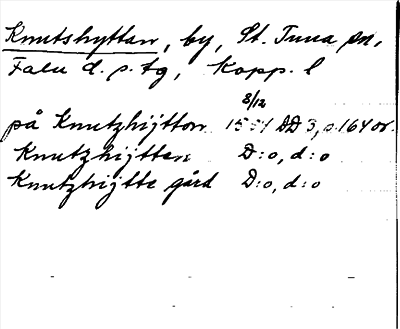 Knutshyttan, by, St. Tuna sn,
Falu d. s. tg, Kopp. l
8/12
på Knutzhijtton 1554 DD 3, s. 164 or.
Knutzhijttan D:o, d:o
Knutzhijtte gård D:o, d:o